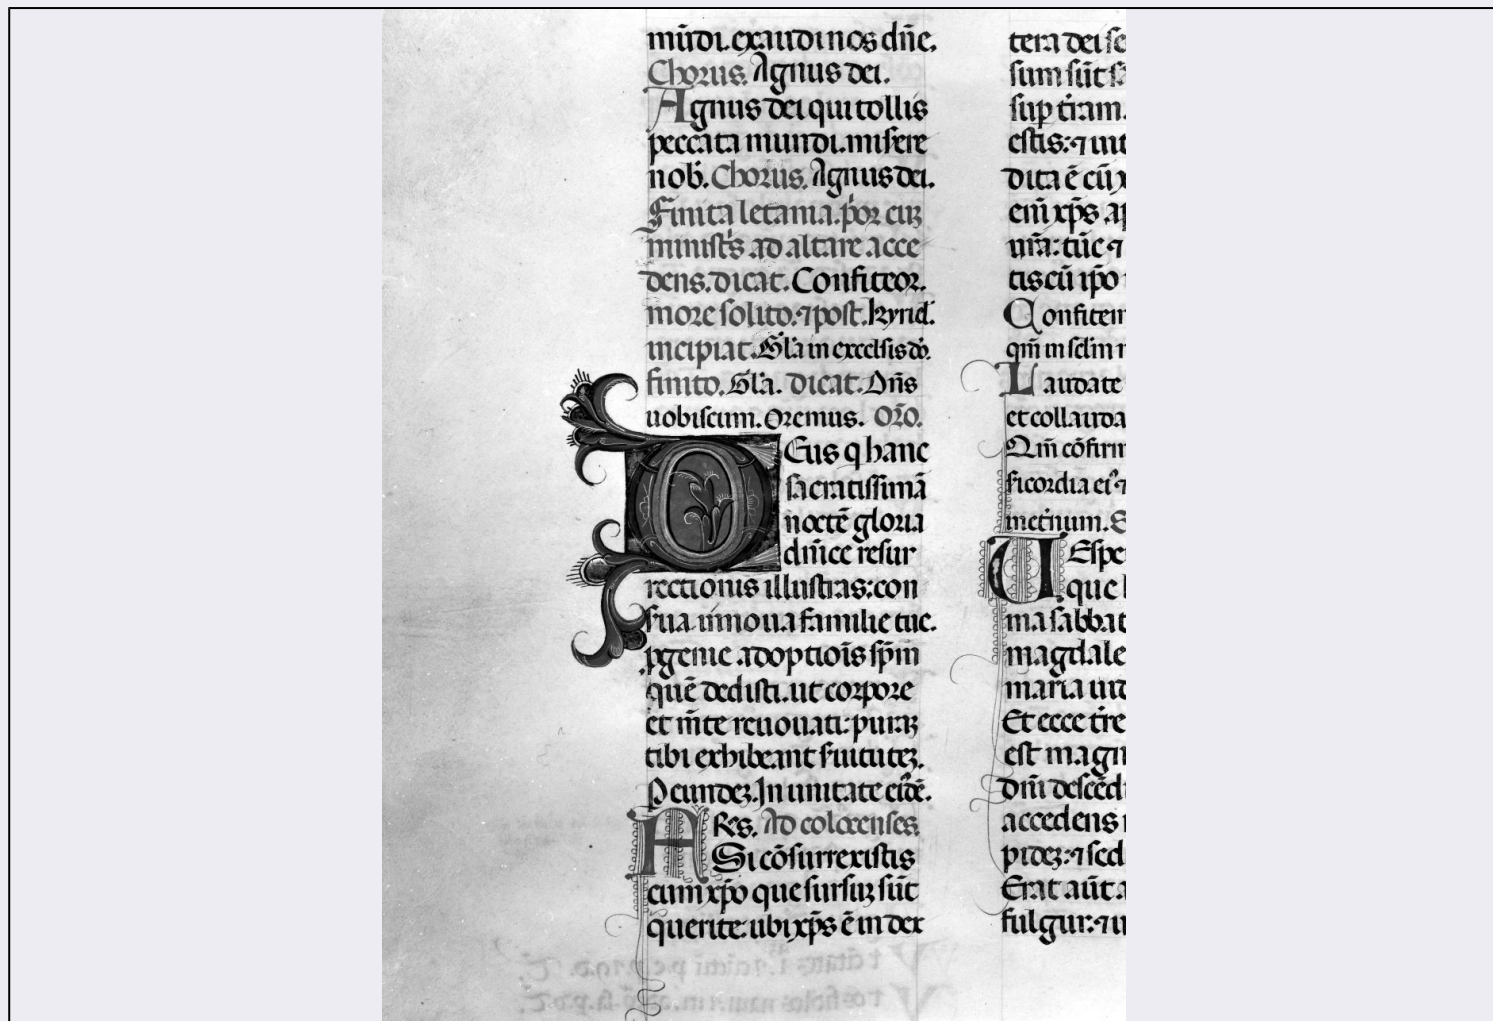 mūdi. exaudi nos dn̄e.
Chorus. Agnus dei.
Agnus dei qui tollis
peccata mundi. misere
nob̄. Chorus. Agnus dei.
Finita letania. por cuȝ
ministr̄s ad altare acce
dens. dicat. Confiteor.
more solito. ⁊ post. kyriel̄.
incipiat. Gl̄a in excelsis dō.
finito. Gl̄a. dicat. Dn̄s
uobiscum. Oremus. Oro.
DEus q hanc
sacratissimā
noctē gloria
dn̄ice resur
rectionis illustras: con
s̄ua in noua familie tue.
ꝓgenie adoptiōis sp̄m
quē dedisti. ut corpore
et m̄te renouati: puraȝ
tibi exhibeant s̄uitutēȝ.
P eundeȝ. In unitate eiꝰdē.
ARes. Ad colocenses.
Si cōsurrexistis
cum xp̄o que sursuȝ sūt
querite. ubi xp̄s ē in dex
tera dei se
sum sūt
sup t̄ram.
estis: ⁊
dita ē cū
eni xp̄s ap
ur̄a: tūc ⁊
tis cū ip̄o
Confitem
qm̄ in sclm
Laudate
et collauda
Qm̄ cōfirm
sicordia eiꝰ ⁊
in et̄num.
UEspe
que
ma sabbat
magdale
maria
Et ecce t̄re
est magn
Dn̄i descēd
accedens
pideȝ: ⁊ sed
Erat aūt
fulgur: ⁊